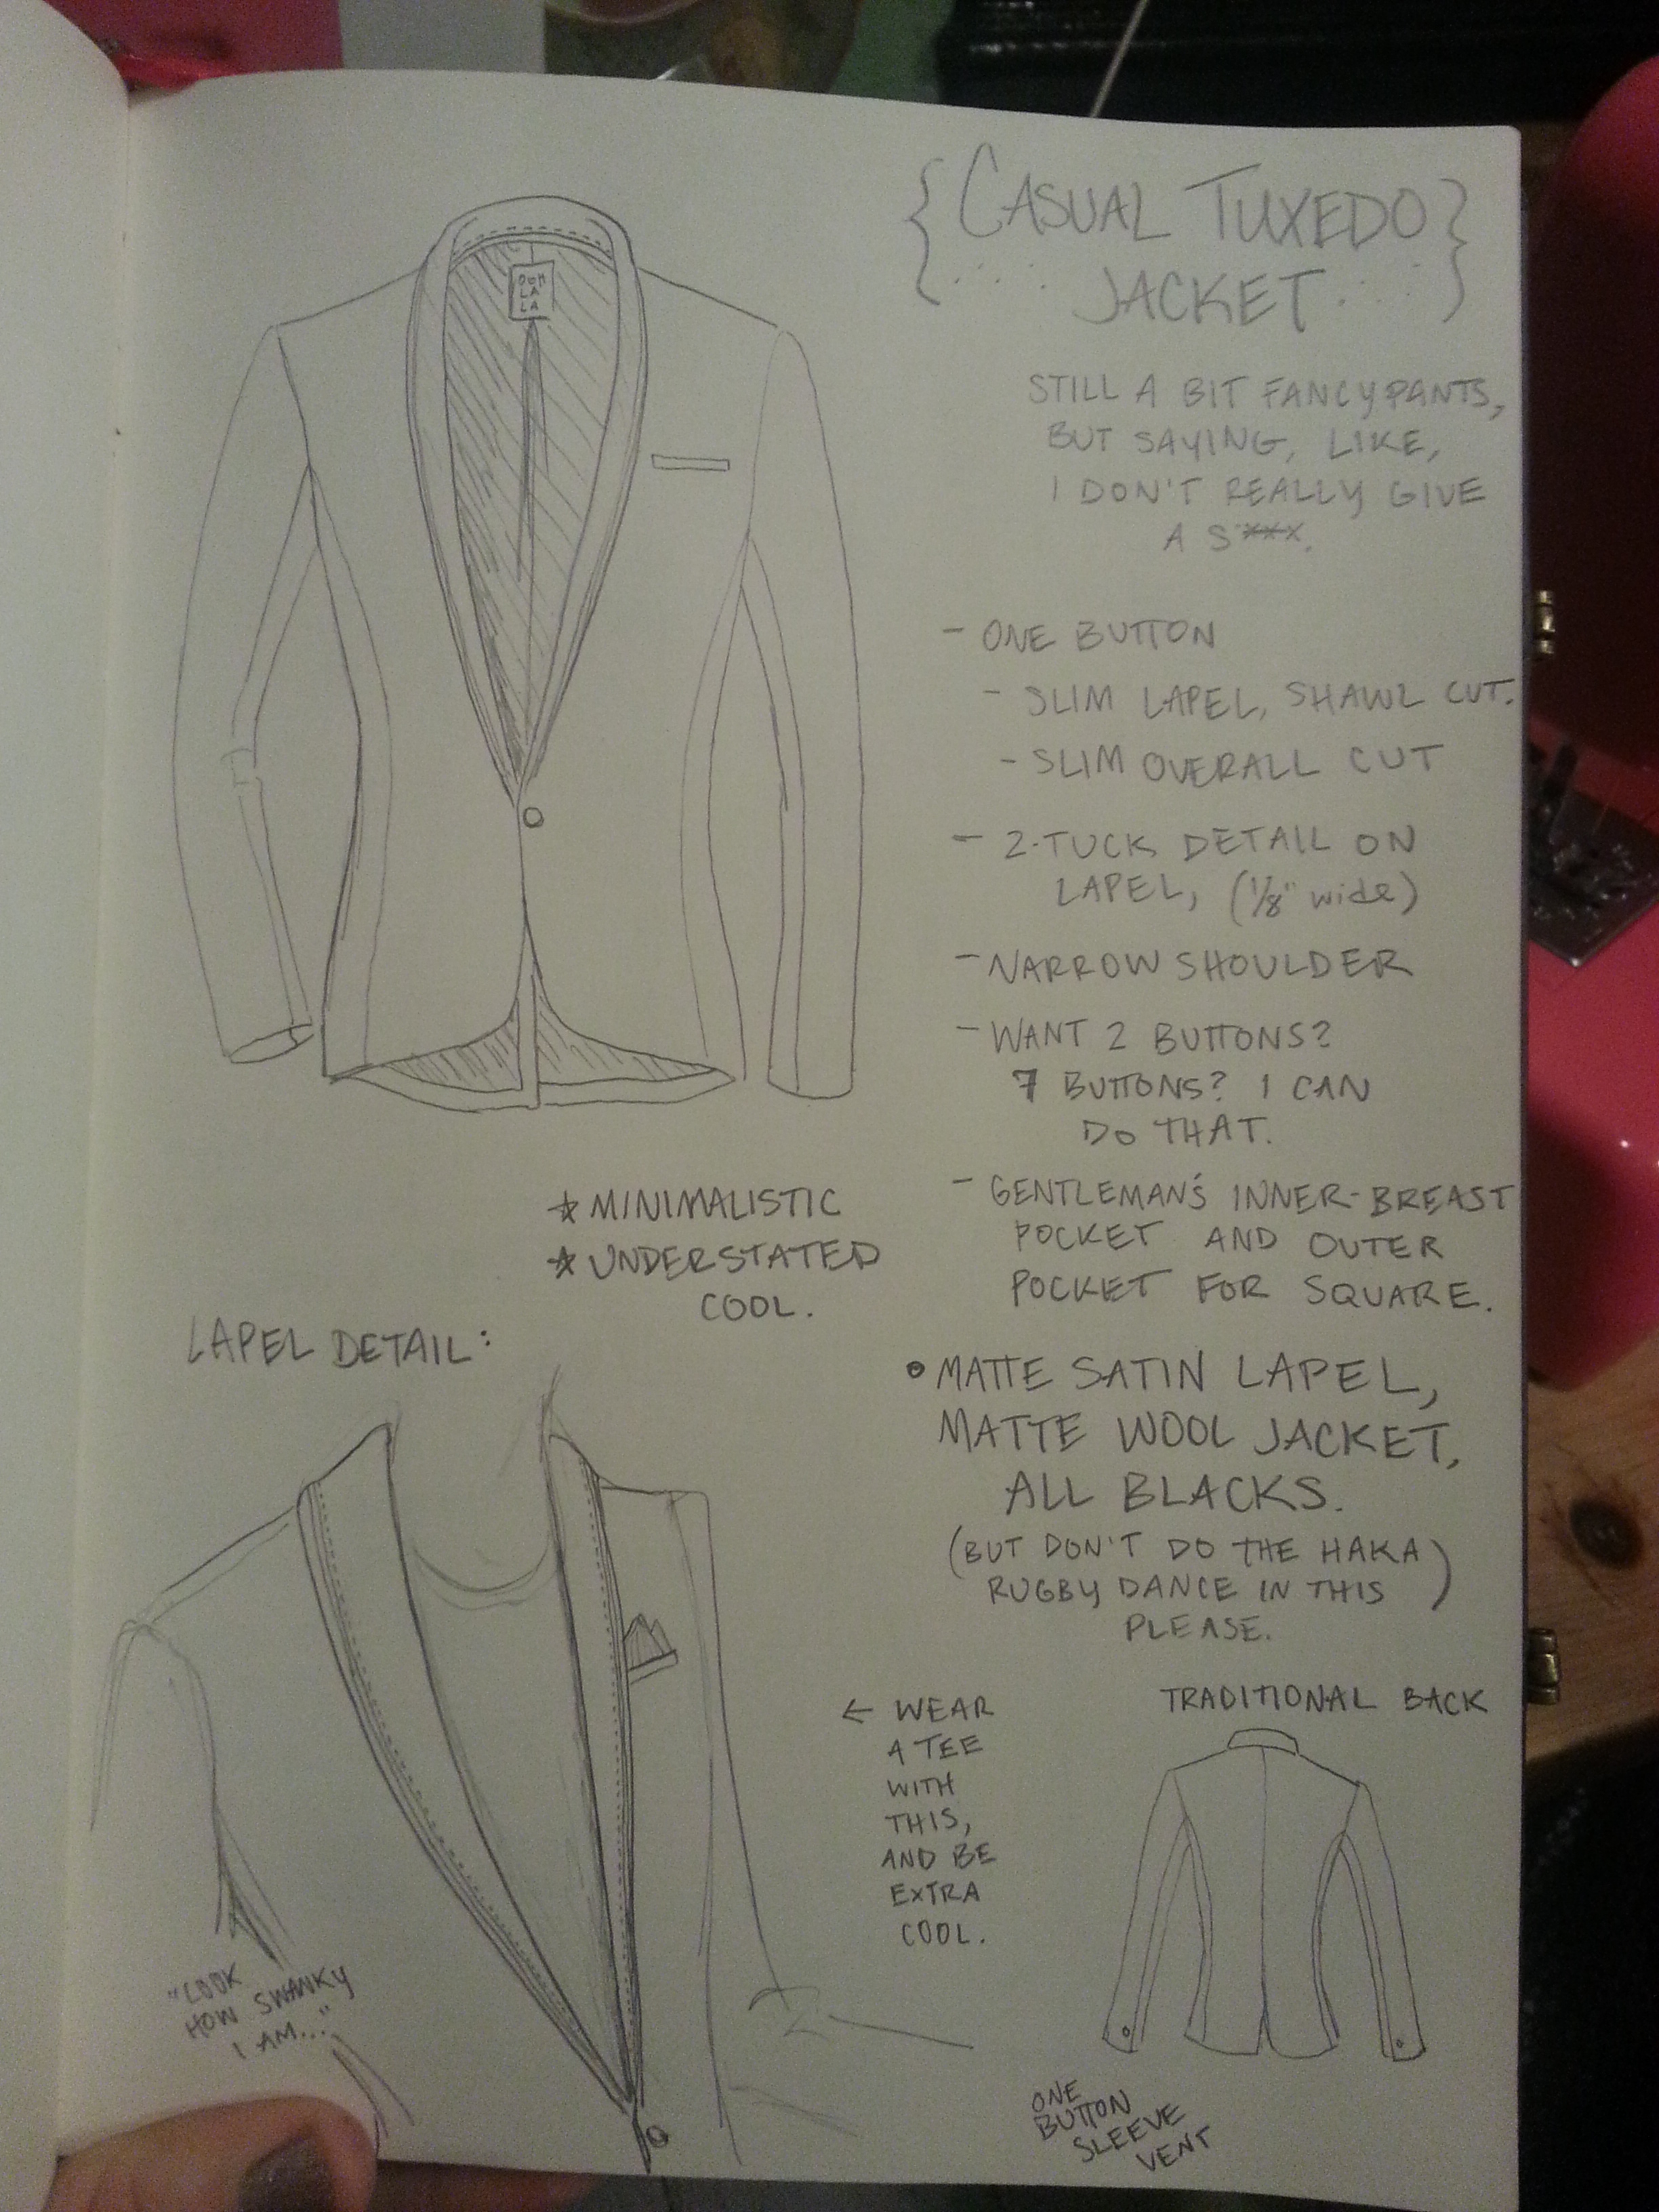 {CASUAL TUXEDO}
JACKET
STILL A BIT FANCYPANTS,
BUT SAYING, LIKE,
I DON'T REALLY GIVE
A S***.
- ONE BUTTON
- SLIM LAPEL, SHAWL CUT.
- SLIM OVERALL CUT
- 2-TUCK DETAIL ON
LAPEL, (1/8" wide)
- NARROW SHOULDER
- WANT 2 BUTTONS?
7 BUTTONS? I CAN
DO THAT.
- GENTLEMAN'S INNER-BREAST
POCKET AND OUTER
POCKET FOR SQUARE.
• MATTE SATIN LAPEL,
MATTE WOOL JACKET,
ALL BLACKS.
(BUT DON'T DO THE HAKA
RUGBY DANCE IN THIS)
PLEASE.
LA
LA
☆ MINIMALISTIC
☆ UNDERSTATED
COOL.
LAPEL DETAIL:
← WEAR
A TEE
WITH
THIS,
AND BE
EXTRA
COOL.
TRADITIONAL BACK
"LOOK
HOW SWANKY
I AM..."
ONE
BUTTON
SLEEVE
VENT